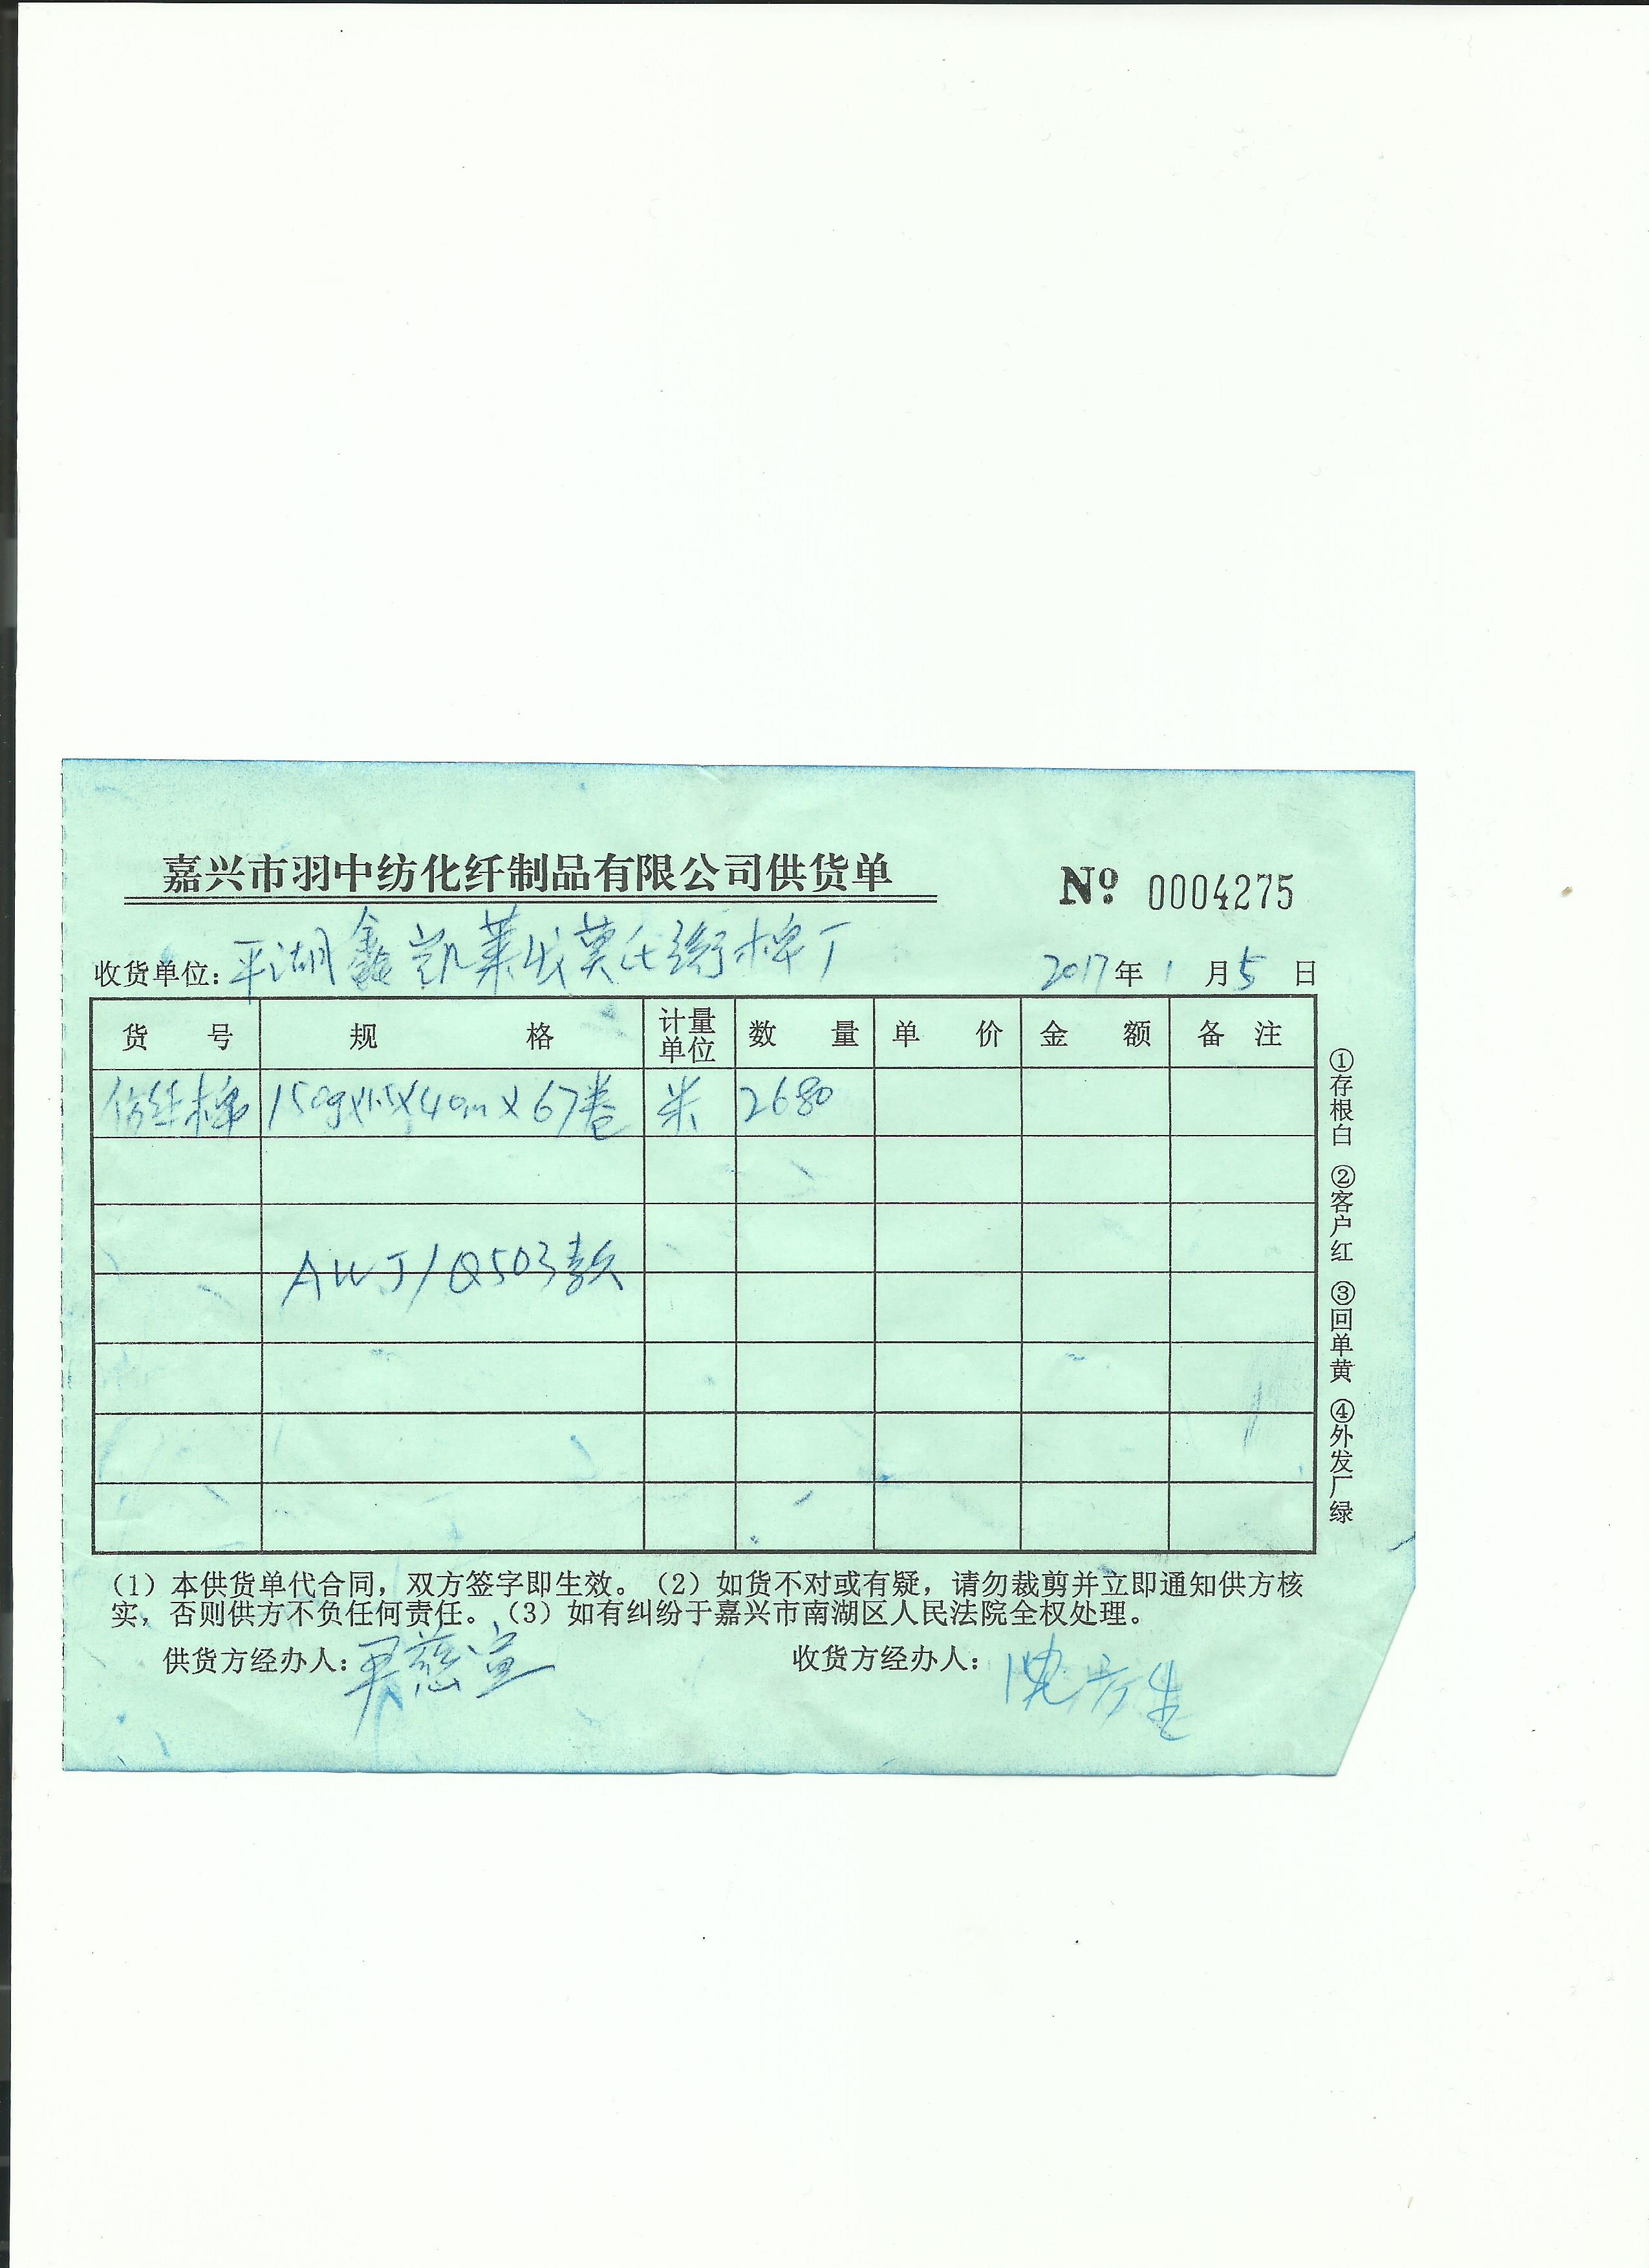 嘉兴市羽中纺化纤制品有限公司供货单
№ 0004275
收货单位：平湖鑫凯莱 莫氏 棉厂
2017年1月5日
货号 规格 计量单位 数量 单价 金额 备注
仿丝棉 150g×1.5×40m×67卷 米 2680
AWJ/Q503款
①存根白 ②客户红 ③回单黄 ④外发厂绿
(1)本供货单代合同，双方签字即生效。(2)如货不对或有疑，请勿裁剪并立即通知供方核
实，否则供方不负任何责任。(3)如有纠纷于嘉兴市南湖区人民法院全权处理。
供货方经办人： 收货方经办人：